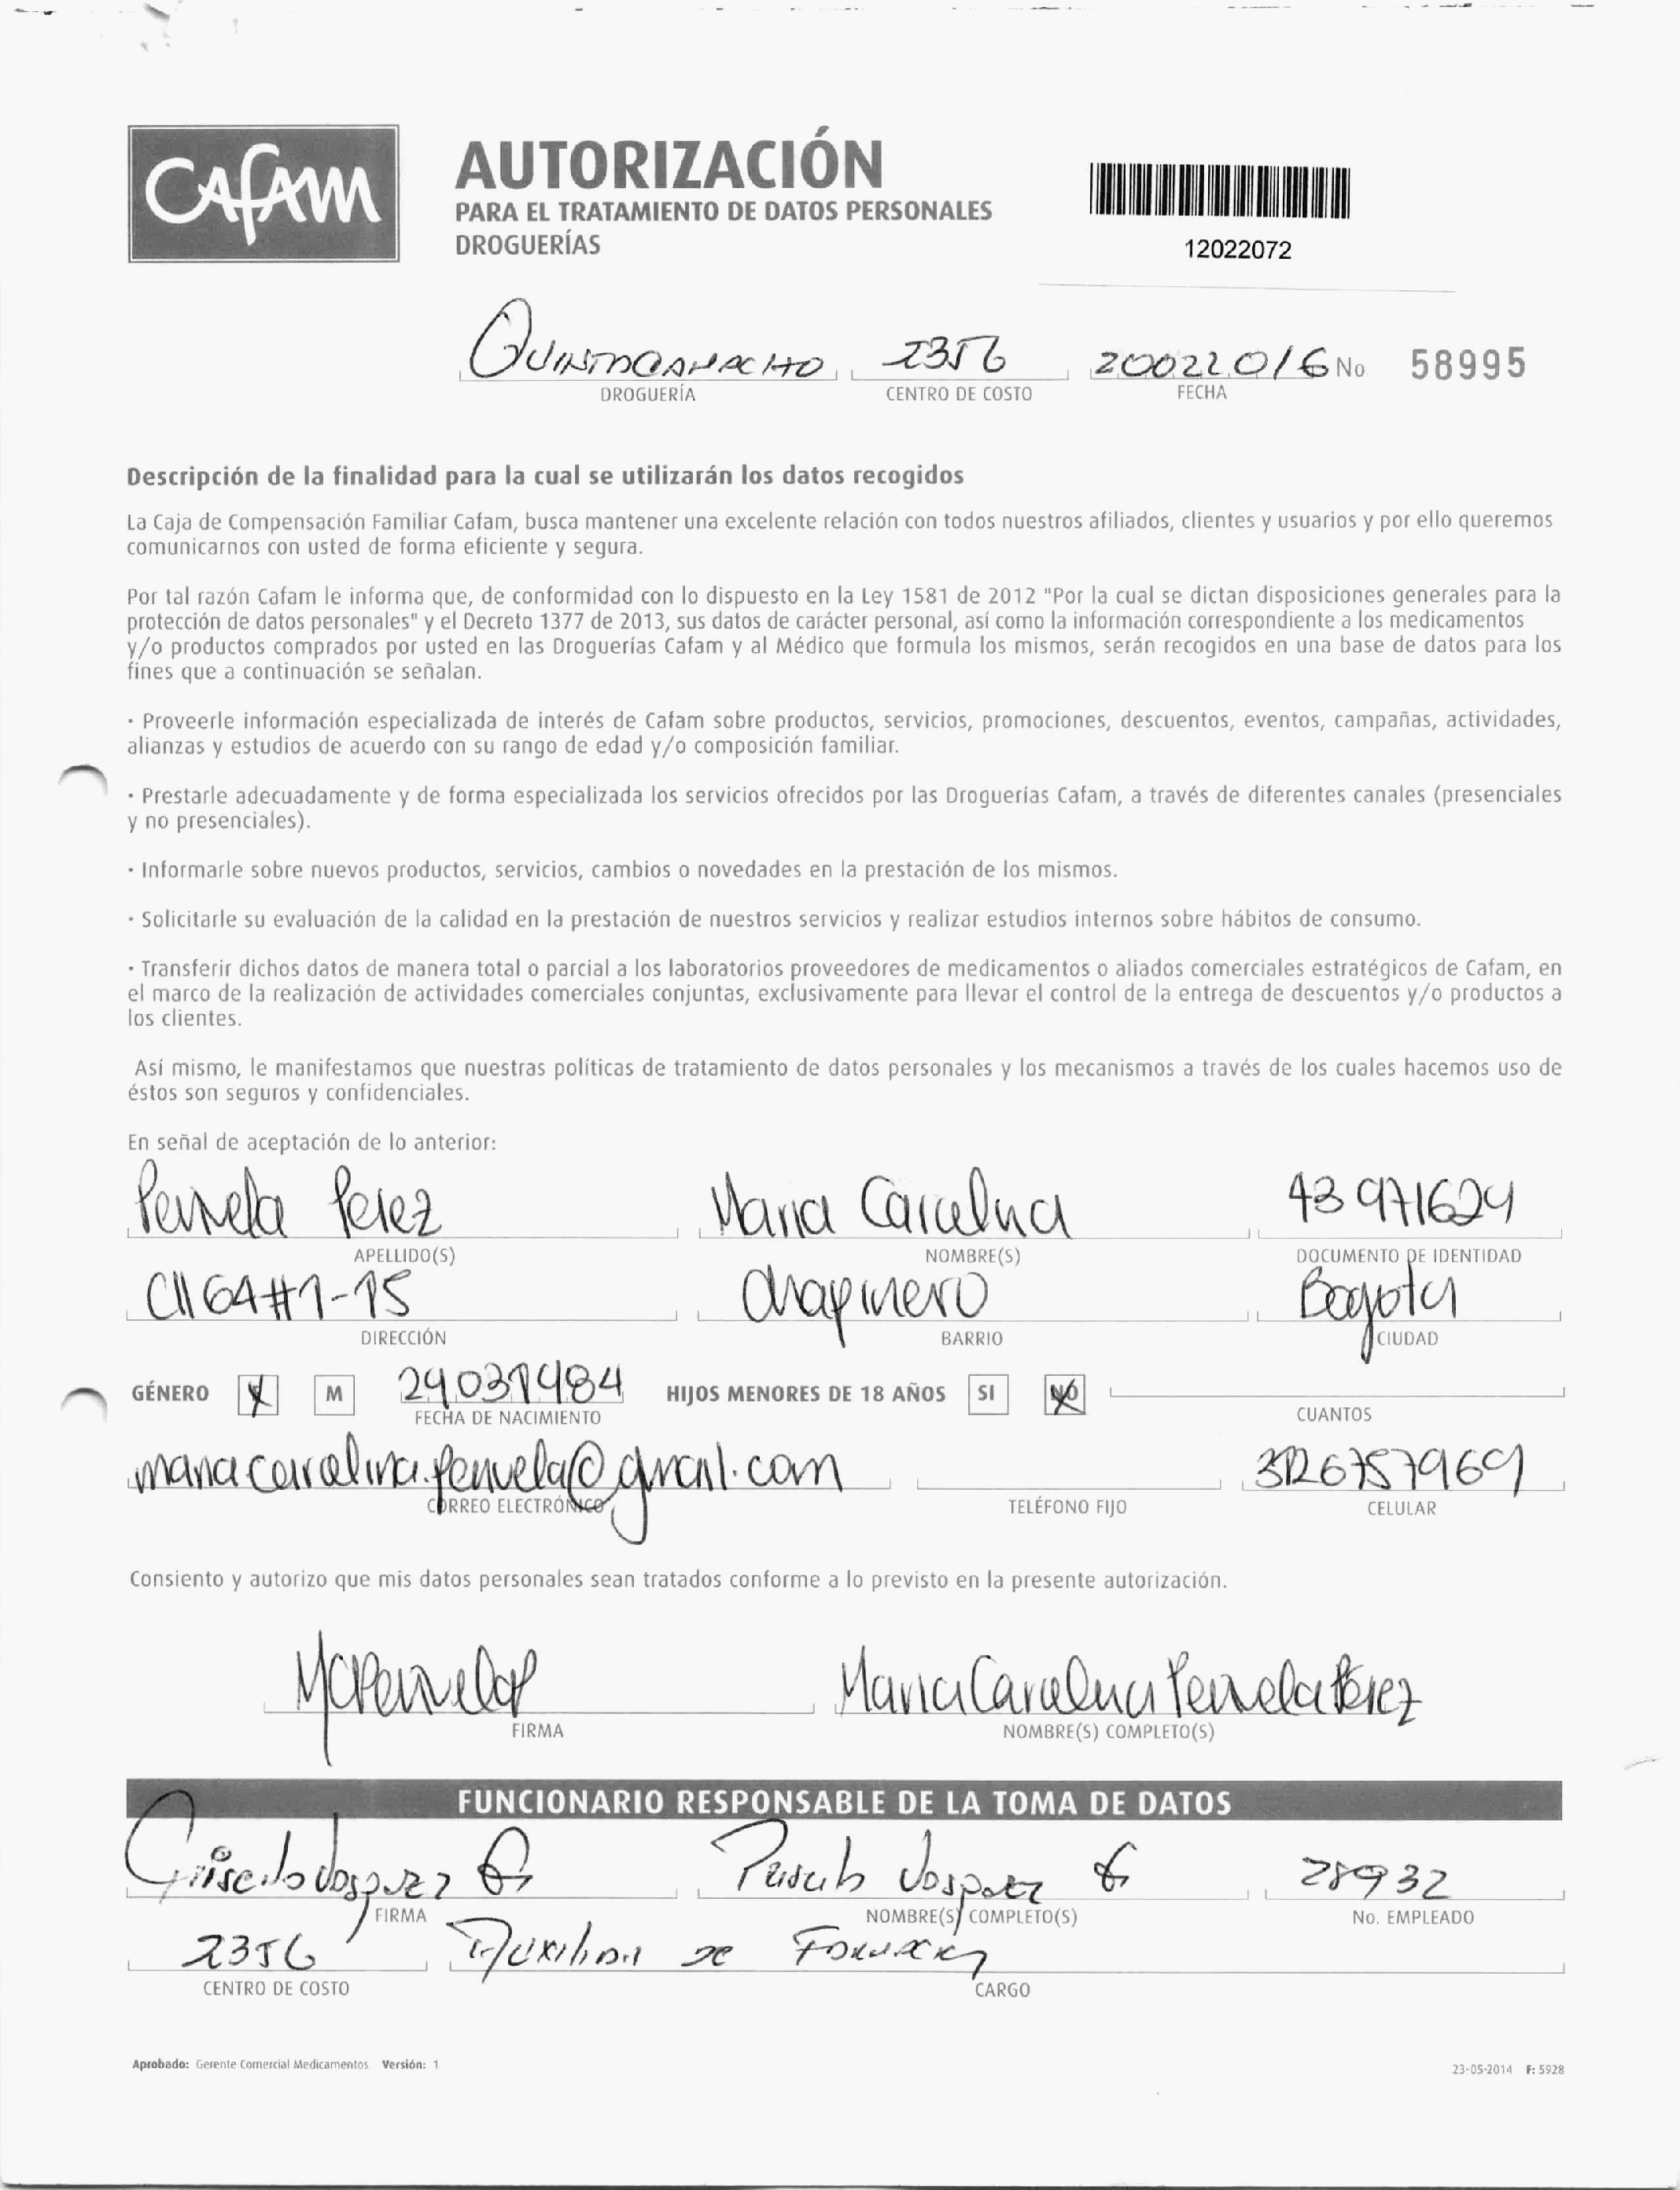 CAFAM
AUTORIZACIÓN
PARA EL TRATAMIENTO DE DATOS PERSONALES
DROGUERÍAS
12022072
2356 20022016 No 58995
DROGUERÍA CENTRO DE COSTO FECHA
Descripción de la finalidad para la cual se utilizarán los datos recogidos
La Caja de Compensación Familiar Cafam, busca mantener una excelente relación con todos nuestros afiliados, clientes y usuarios y por ello queremos
comunicarnos con usted de forma eficiente y segura.
Por tal razón Cafam le informa que, de conformidad con lo dispuesto en la Ley 1581 de 2012 "Por la cual se dictan disposiciones generales para la
protección de datos personales" y el Decreto 1377 de 2013, sus datos de carácter personal, así como la información correspondiente a los medicamentos
y/o productos comprados por usted en las Droguerías Cafam y al Médico que formula los mismos, serán recogidos en una base de datos para los
fines que a continuación se señalan.
· Proveerle información especializada de interés de Cafam sobre productos, servicios, promociones, descuentos, eventos, campañas, actividades,
alianzas y estudios de acuerdo con su rango de edad y/o composición familiar.
· Prestarle adecuadamente y de forma especializada los servicios ofrecidos por las Droguerías Cafam, a través de diferentes canales (presenciales
y no presenciales).
· Informarle sobre nuevos productos, servicios, cambios o novedades en la prestación de los mismos.
· Solicitarle su evaluación de la calidad en la prestación de nuestros servicios y realizar estudios internos sobre hábitos de consumo.
· Transferir dichos datos de manera total o parcial a los laboratorios proveedores de medicamentos o aliados comerciales estratégicos de Cafam, en
el marco de la realización de actividades comerciales conjuntas, exclusivamente para llevar el control de la entrega de descuentos y/o productos a
los clientes.
Así mismo, le manifestamos que nuestras políticas de tratamiento de datos personales y los mecanismos a través de los cuales hacemos uso de
éstos son seguros y confidenciales.
En señal de aceptación de lo anterior:
Penuela Perez Maria Carolina 43971624
APELLIDO(S) NOMBRE(S) DOCUMENTO DE IDENTIDAD
Cll 64#1-15 Chapinero Bogota
DIRECCIÓN BARRIO CIUDAD
GÉNERO M 24031984 HIJOS MENORES DE 18 AÑOS SI NO
FECHA DE NACIMIENTO CUANTOS
mariacarolina.penuela@gmail.com 3126757969
CORREO ELECTRÓNICO TELÉFONO FIJO CELULAR
Consiento y autorizo que mis datos personales sean tratados conforme a lo previsto en la presente autorización.
MCPenuelaP Maria Carolina Penuela Perez
FIRMA NOMBRE(S) COMPLETO(S)
FUNCIONARIO RESPONSABLE DE LA TOMA DE DATOS
28932
FIRMA NOMBRE(S) COMPLETO(S) No. EMPLEADO
2356 Auxiliar de
CENTRO DE COSTO CARGO
Aprobado: Gerente Comercial Medicamentos Versión: 1
23-05-2014 F: 5928